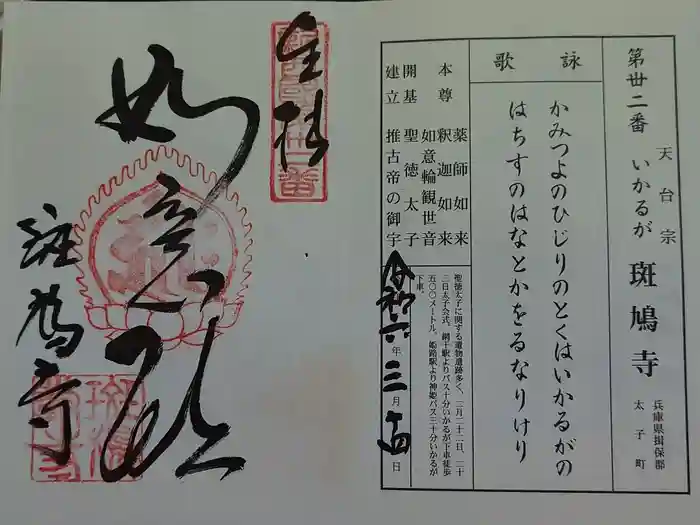 第卅二番
天台宗
いかるが 斑鳩寺
兵庫県揖保郡
太子町
詠歌
かみつよのひじりのとくはいかるがの
はちすのはなとかをるなりけり
本尊
薬師如来
釈迦如来
如意輪観世音
開基 聖徳太子
建立 推古帝の御宇
聖徳太子に関する遺物遺跡多く、二月二十二日、二十
三日太子会式。網干駅よりバス十分いかるが下車徒歩
五〇〇メートル。姫路駅より神姫バス三十分いかるが
下車。
令和六年三月十四日
奉拝
如意輪
斑鳩寺